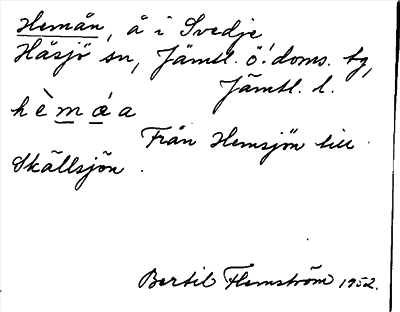 Hemån, å i Svedje
Håsjö sn, Jämtl. ö. doms. tg,
Jämtl. l.
h è m œ́ a
Från Hemsjön till
Skällsjön.
Bertil Flemström 1952.